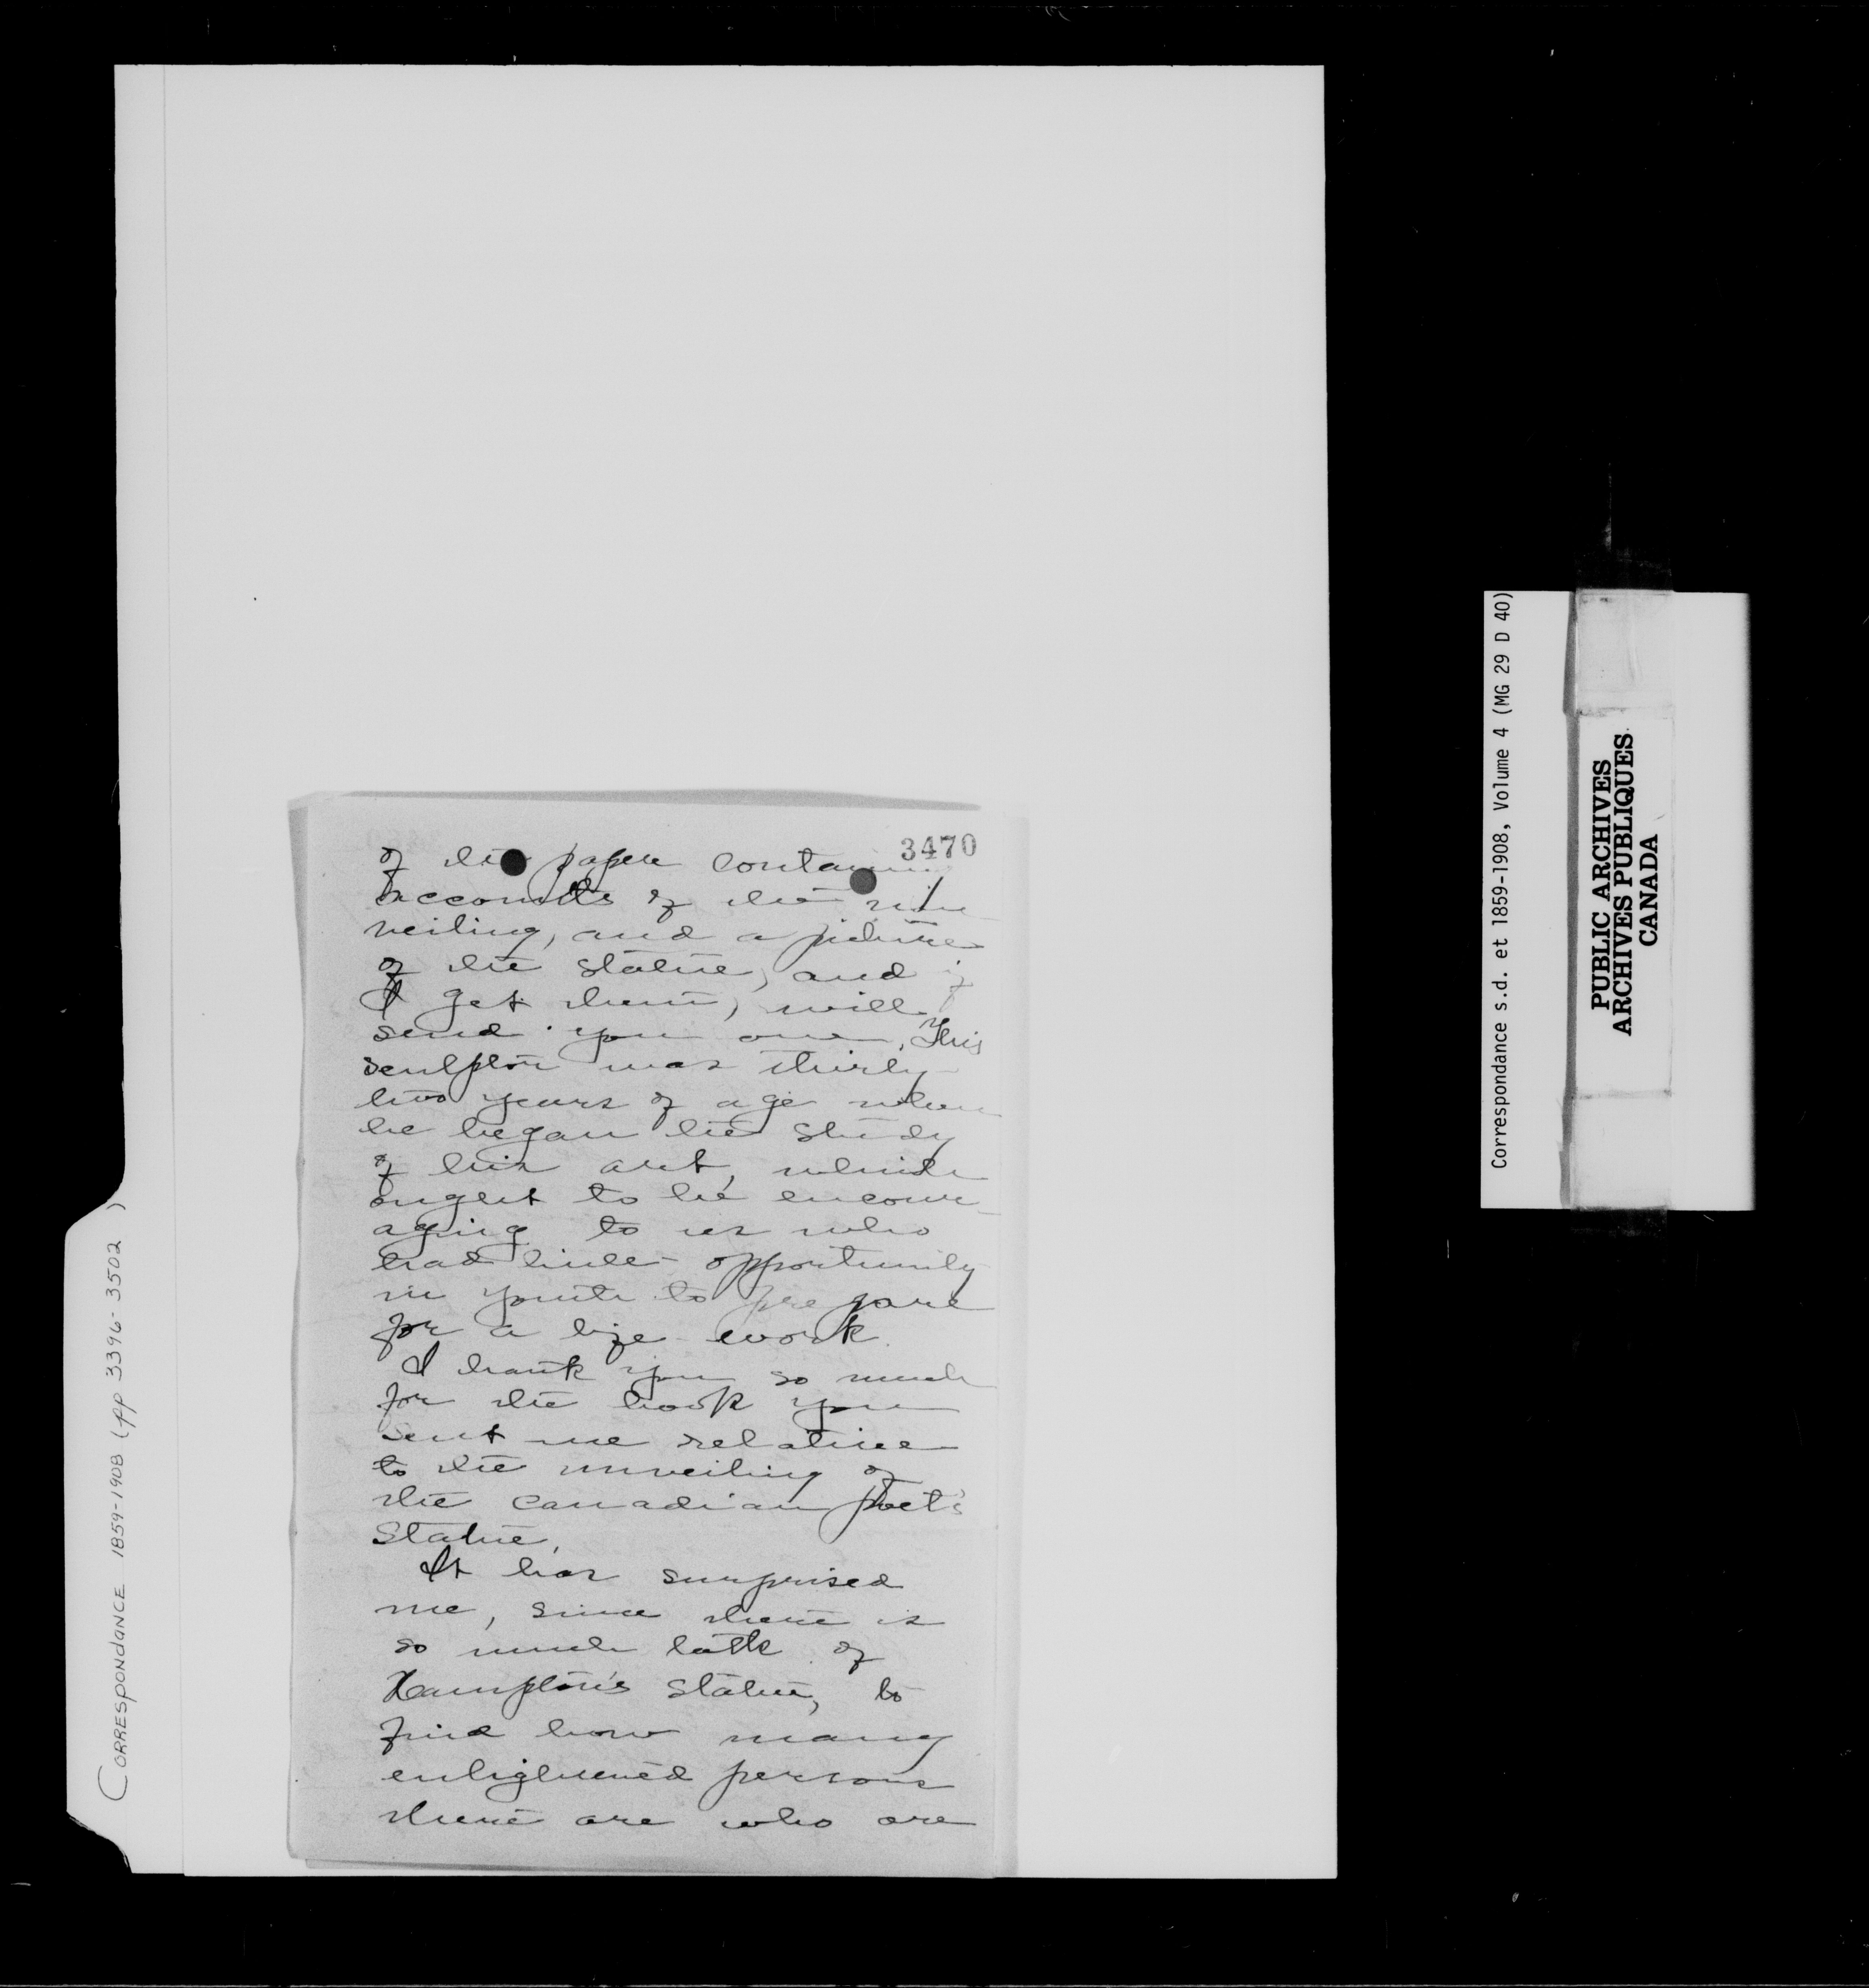 3470
of the paper contain
accounts of the un
veiling, and a picture
of the statue, and if
I get them, will
send you one. This
sculptor was thirty
two years of age when
he began the study
of his art, which
ought to be encour
aging to us who
had little opportunity
in youth to prepare
for a life-work.
I thank you so much
for the book you
sent me relative
to the unveiling of
the Canadian Poet's
Statue.
It has surprised
me, since there is
so much talk of
Hampton's statue, to
find how many
enlightened persons
there are who are
CORRESPONDANCE 1859-1908 (pp 3396-3502)
Correspondance s.d. et 1859-1908, Volume 4 (MG 29 D 40)
PUBLIC ARCHIVES
ARCHIVES PUBLIQUES
CANADA